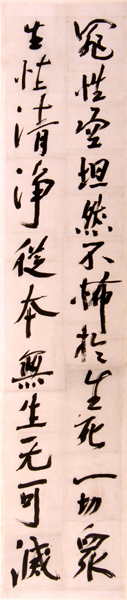 冤性空坦然不怖於生死一切衆
生性清淨從本無生无可滅